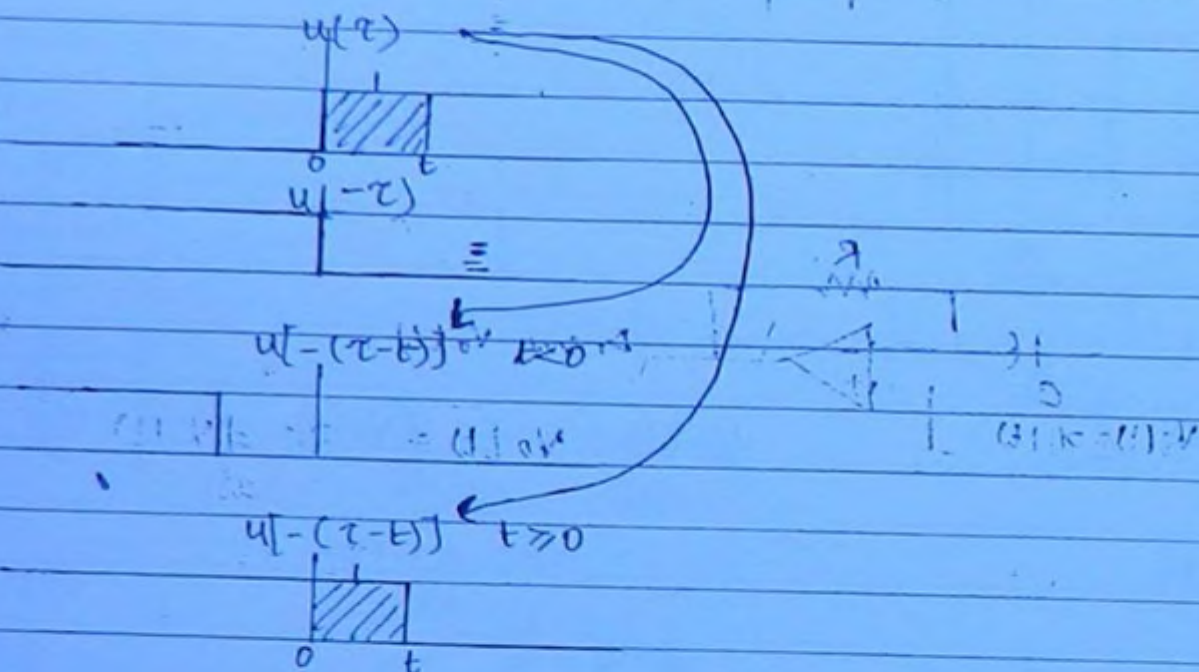 u(τ)
0 t
u(-τ)
u[-(τ-t)] t<0
u[-(τ-t)] t≥0
0 t